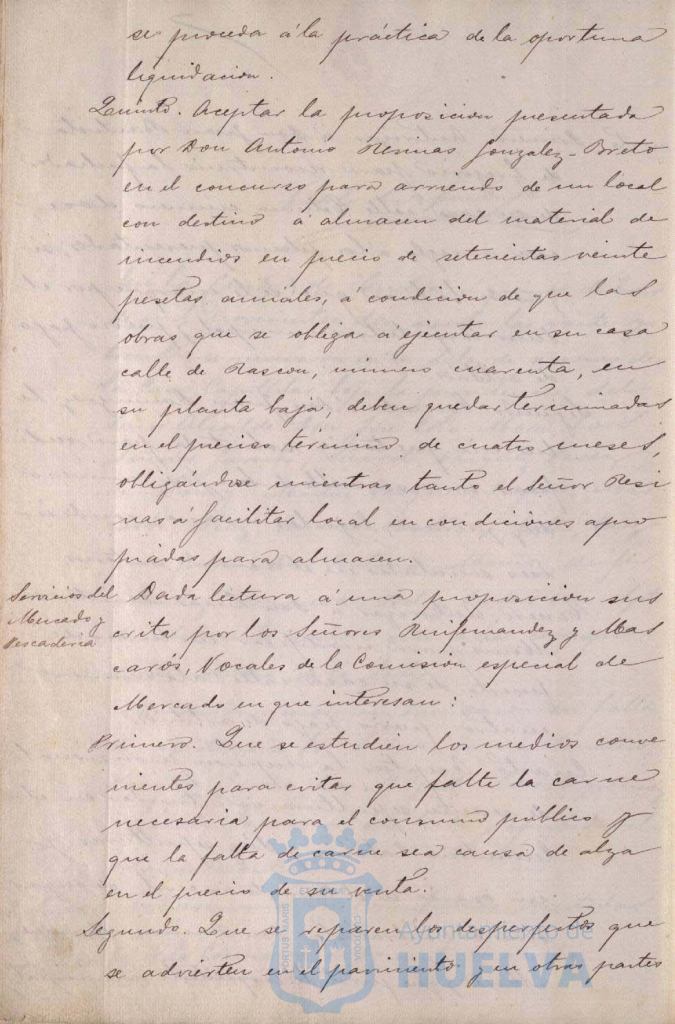 se proceda á la práctica de la oportuna
liquidacion.
Quinto. Aceptar la proposicion presentada
por Don Antonio Resinas Gonzalez-Breto
en el concurso para arriendo de un local
con destino á almacen del material de
incendios en precio de setecientas veinte
pesetas anuales, á condicion de que las
obras que se obliga á ejecutar en su casa
calle de Rascon, número cuarenta, en
su planta baja, deben quedar terminadas
en el preciso término de cuatro meses,
obligándose mientras tanto el Señor Resi
nas á facilitar local en condiciones apro
piadas para almacen.
Servicios del
Mercado y
Pescaderia
Dada lectura á una proposicion sus
crita por los Señores Ruifernandez y Mas
carós, Vocales de la Comisión especial de
Mercado en que interesan:
Primero. Que se estudien los medios conve
nientes para evitar que falte la carne
necesaria para el consumo público y
que la falta de carne sea causa de alza
en el precio de su venta.
Segundo. Que se reparen los desperfectos que
se advierten en el pavimento y en otras partes
Ayuntamiento de
HUELVA
PORTUS MARIS
ET TERRAE
CUSTODIA